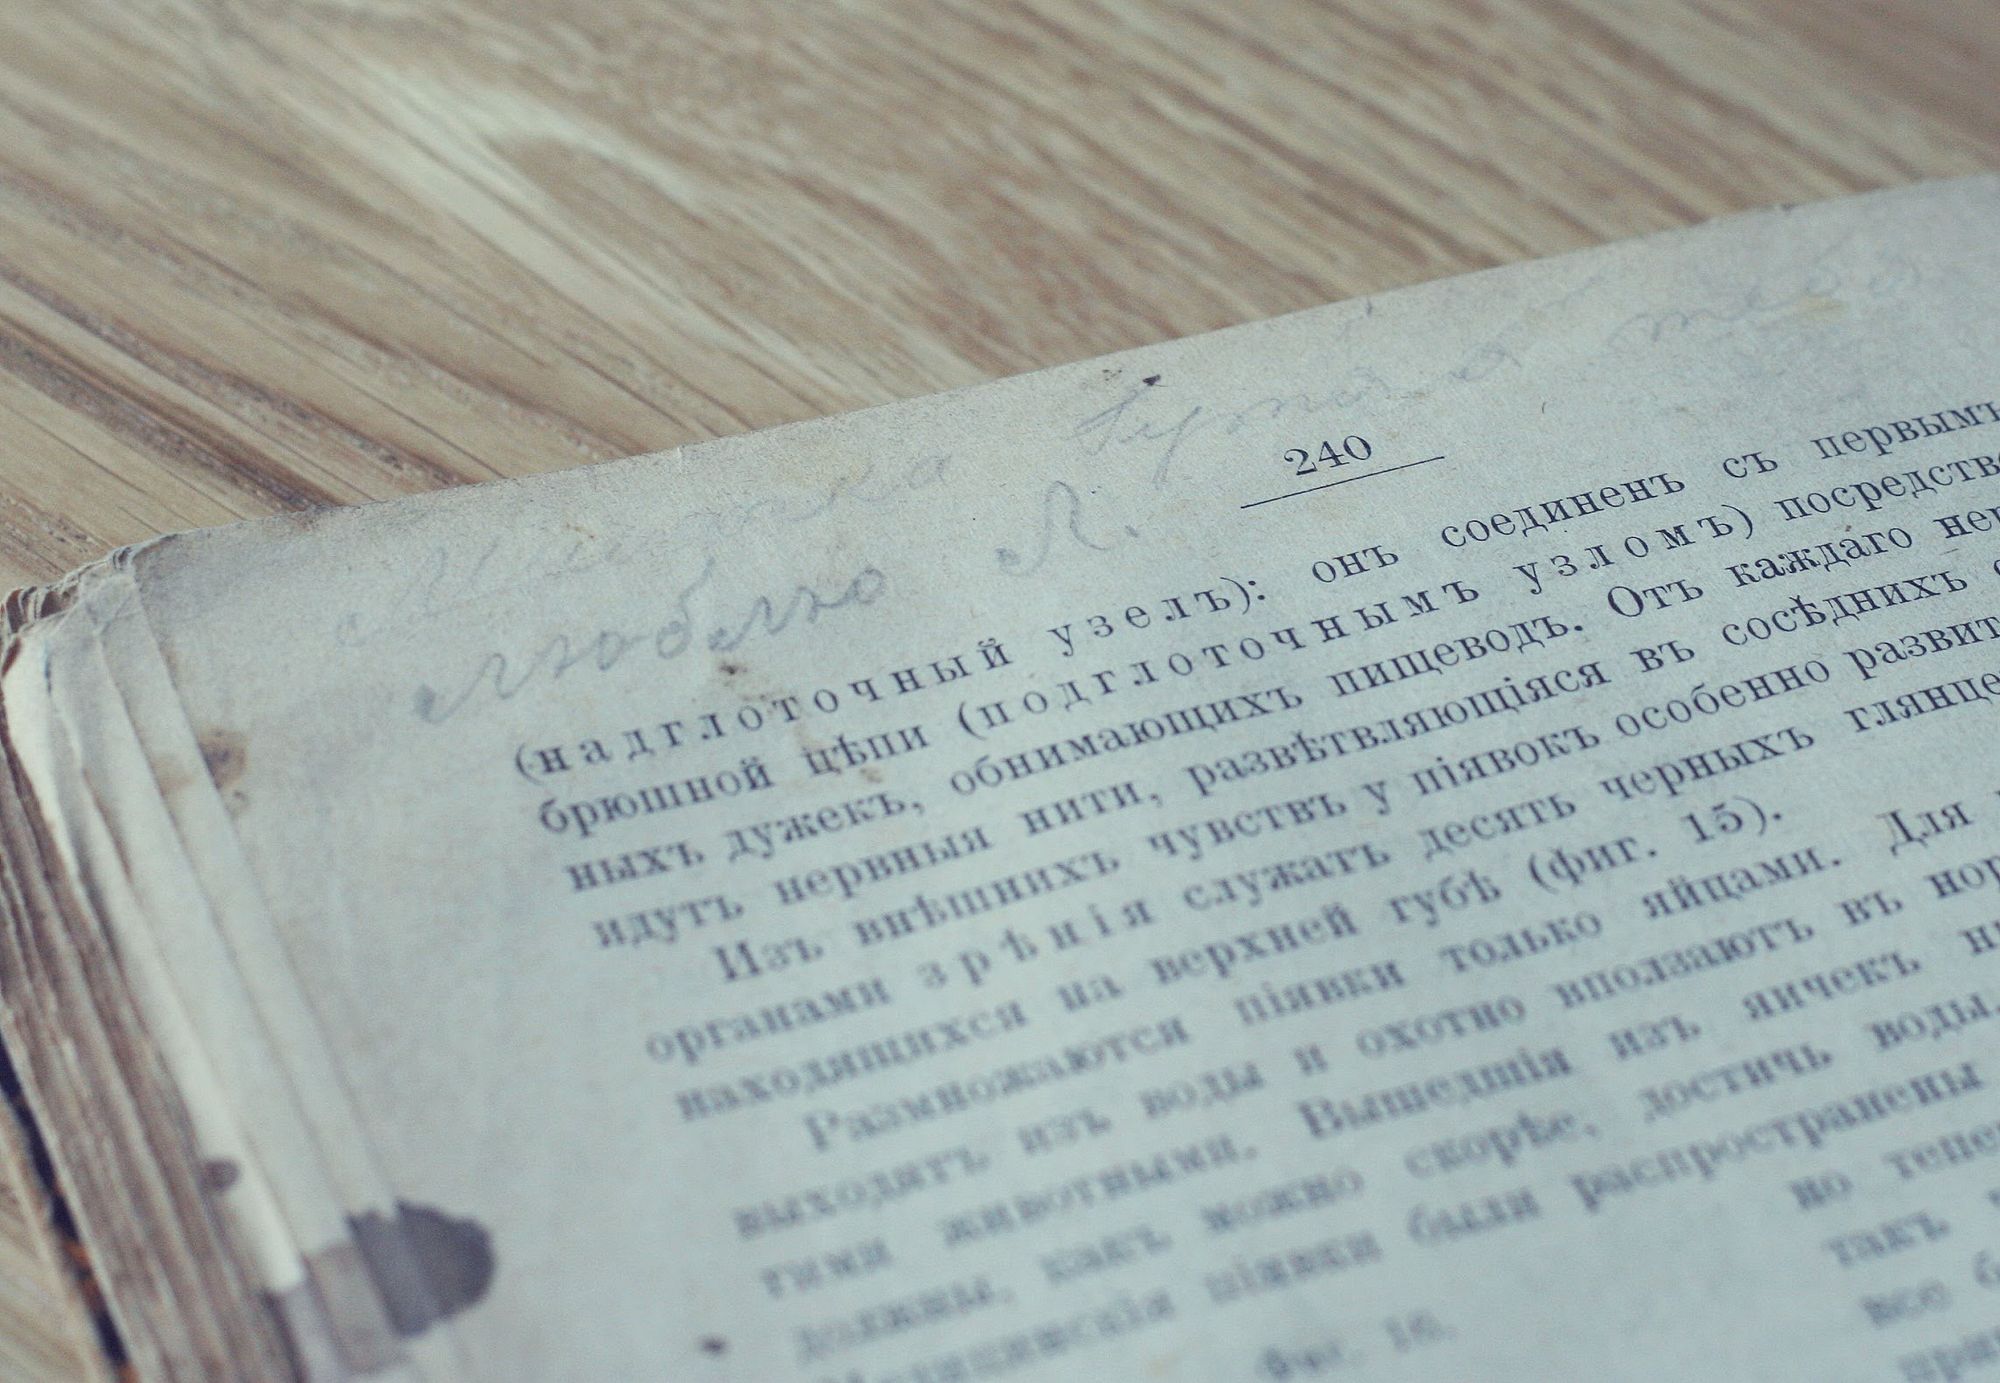 тебя
люблю Л.
240
(надглоточный узелъ): онъ соединенъ съ первымъ
брюшной цѣпи (подглоточнымъ узломъ) посредство
ныхъ дужекъ, обнимающихъ пищеводъ. Отъ каждаго нер
идутъ нервныя нити, развѣтвляющіяся въ сосѣднихъ
Изъ внѣшнихъ чувствъ у піявокъ особенно развит
органами зрѣнія служатъ десять черныхъ глянце
находящихся на верхней губѣ (фиг. 15).
Размножаются піявки только яйцами. Для
выходятъ изъ воды и охотно вползаютъ въ нор
тими животными. Вышедшія изъ яичекъ
должны, какъ можно скорѣе, достичь воды.
Медицинскія піявки были распространены
но тепе
такъ
все б
при
Фиг. 16.